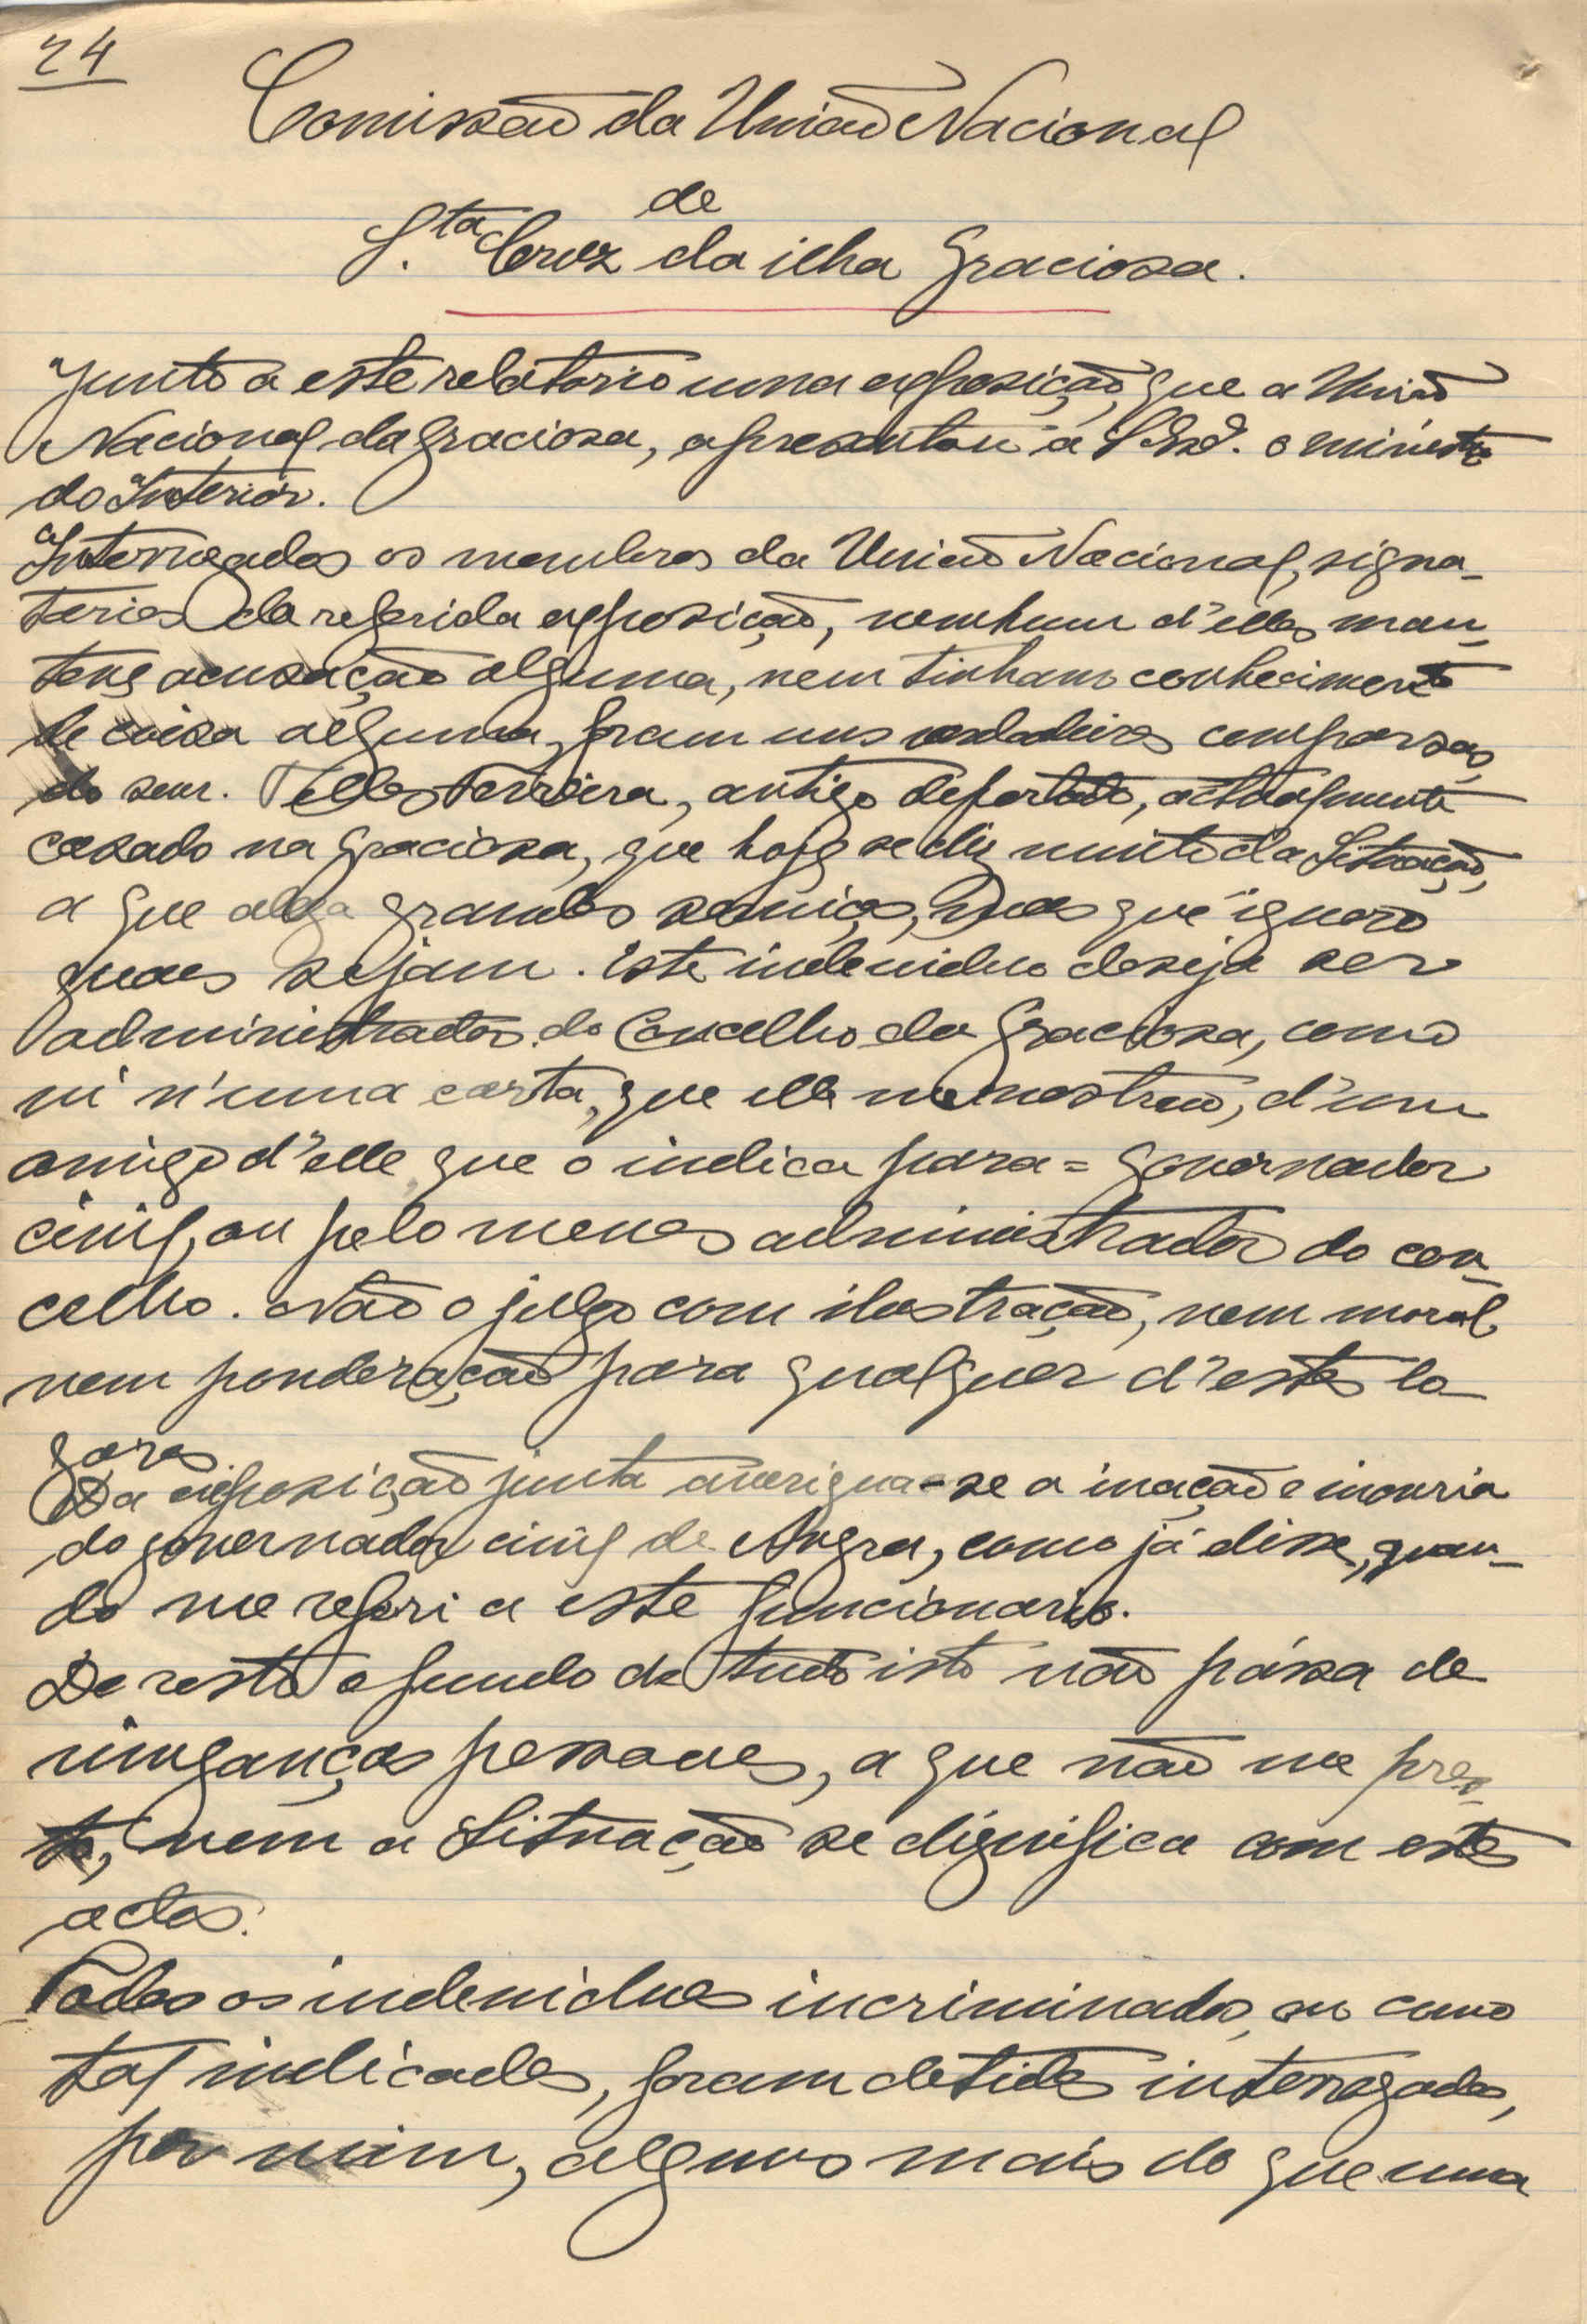 24
Comissão da União Nacional
de
S.ta Cruz da ilha Graciosa.
Junto a este relatorio uma exposição, que a União
Nacional da Graciosa, apresentou a S. Exª. o ministro
do Interior.
Interrogados os membros da União Nacional, signa-
tarios da referida exposição, nenhum d'elles man-
teve acusação alguma, nem tinham conhecimento
de coisa alguma, foram uns verdadeiros comparsas
do senr. Telles Ferreira, antigo deportado, actualmente
casado na Graciosa, que hoje se diz muito da Situação,
a que alega grandes serviços, mas que ignoro
quaes sejam. Este indeviduo deseja ser
administrador do Concelho da Graciosa, como
vi n'uma carta, que elle me mostrou, d'um
amigo d'elle que o indica para = governador
civil, ou pelo menos administrador do con-
celho. Não o julgo com ilustração, nem moral,
nem ponderação para qualquer d'estes lo-
gares.
Da exposição junta averigua-se a inação e incuria
do governador civil de Angra, como já disse, quan-
do me referi a este funcionario.
De resto o fundo de tudo isto não pássa de
vinganças pessoaes, a que não me pres-
to, nem a Situação se dignifica com estes
actos.
Todos os indeviduos incriminados, ou como
tal indicados, foram detidos interrogados,
por mim, alguns mais do que uma